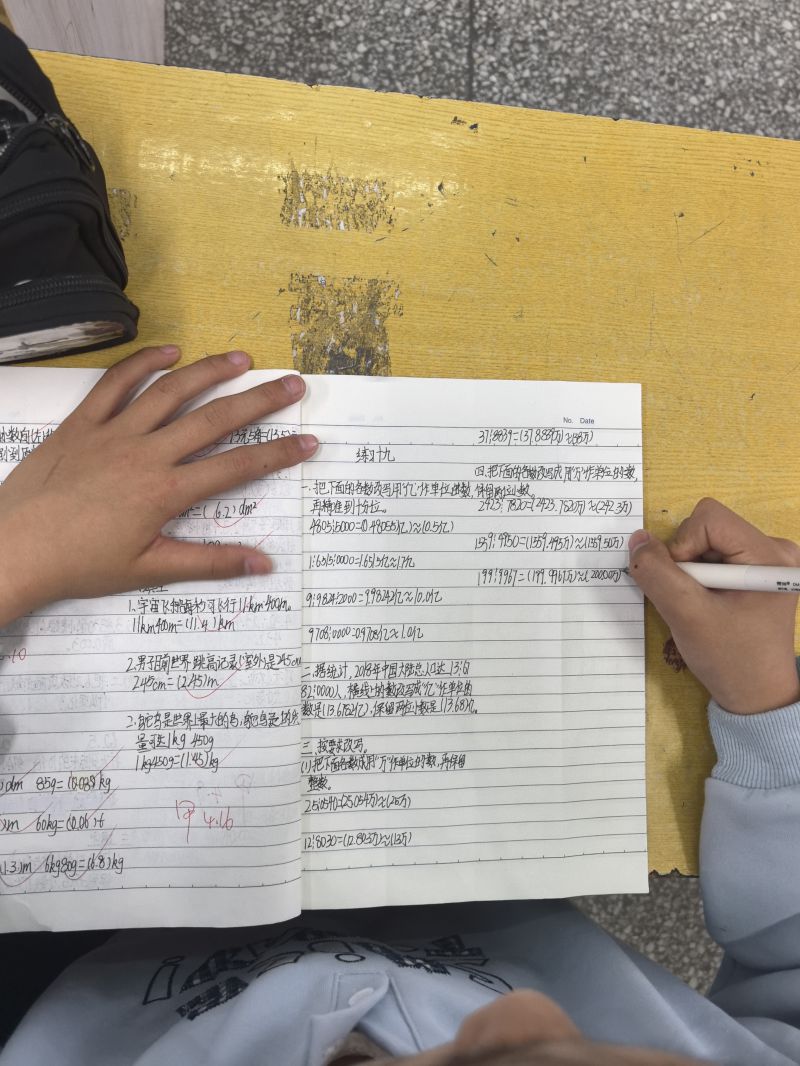 13元5角=(13.5)元
=(16.2)dm²
1、宇宙飞船每秒可飞行11km400m。
11km400m=(11.4)km
2、男子目前世界跳高记录(室外)是245cm
245cm=(2.45)m
量可达1kg 450g
1kg450g=(1.45)kg
dm 85g=(0.085)kg
)m 60kg=(0.06)t
1.3)m 6kg80g=(6.8)kg
4.16
No. Date
练习十九
一、把下面的各数改写成用"亿"作单位的数,
再精确到十分位。
480515000=(0.48055亿)≈(0.5亿)
1:6515:0000=1.6515亿≈1.7亿
9:9824:2000=9.9824亿≈10.0亿
9708:0000=0.9708亿≈1.0亿
二、据统计,2018年中国大陆总人口达13:6
82:0000人,横线上的数改写成"亿"作单位的
数是(13.6782亿),保留两位小数是(13.68)亿。
三、按要求改写。
(1)把下面各数成用"万"作单位的数,再保留
整数。
25:0540=(25.054万)≈(25万)
12:8030=(12.803万)≈(13万)
37:8839=(37.8839万)≈(38万)
四、把下面的各数改写成用"万"作单位的数,
保留两位小数。
2423:7820=(2423.7820万)≈(242.3万)
1559:4950=(1559.495万)≈(1559.50万)
199:9967=(199.9967万)≈(200.00万)